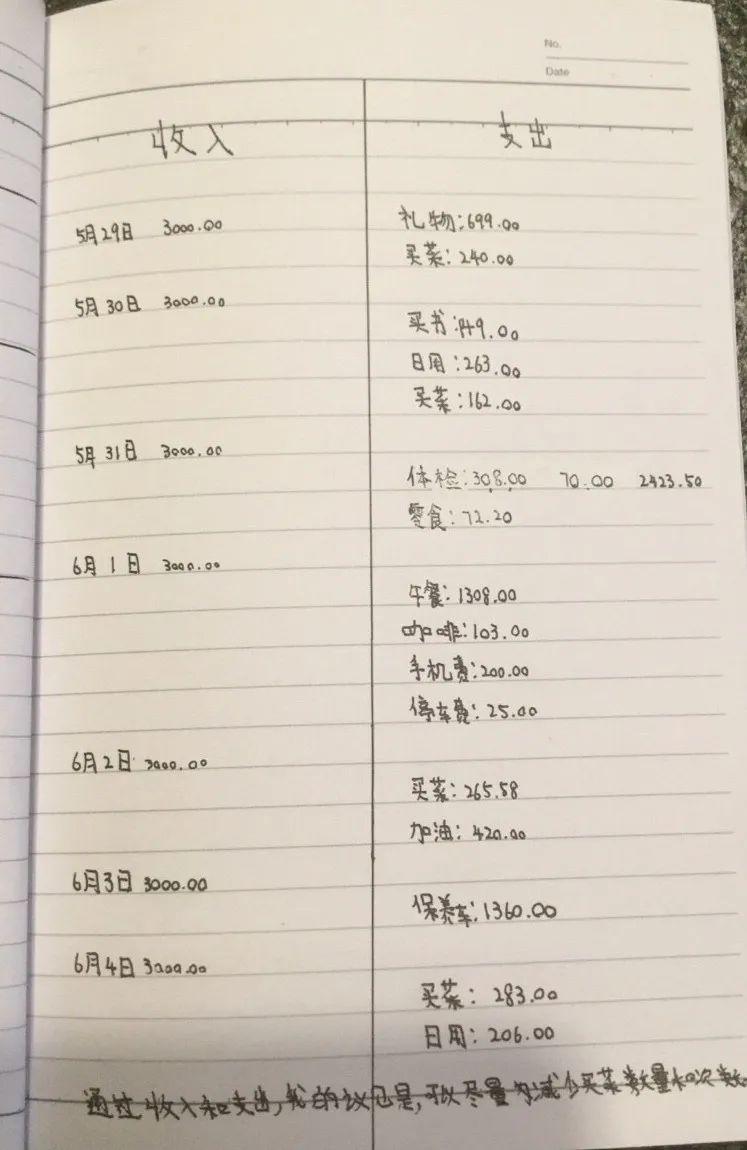 No.
Date
收入 支出
5月29日 3000.00 礼物:699.00
买菜:240.00
5月30日 3000.00
买书:149.00
日用:263.00
买菜:162.00
5月31日 3000.00
体检:308.00 70.00 2423.50
零食:72.20
6月1日 3000.00
午餐:1308.00
咖啡:103.00
手机费:200.00
停车费:25.00
6月2日 3000.00
买菜:265.58
加油:420.00
6月3日 3000.00
保养车:1360.00
6月4日 3000.00
买菜:283.00
日用:206.00
通过收入和支出,我的议见是,可以尽量的减少买菜数量和次数